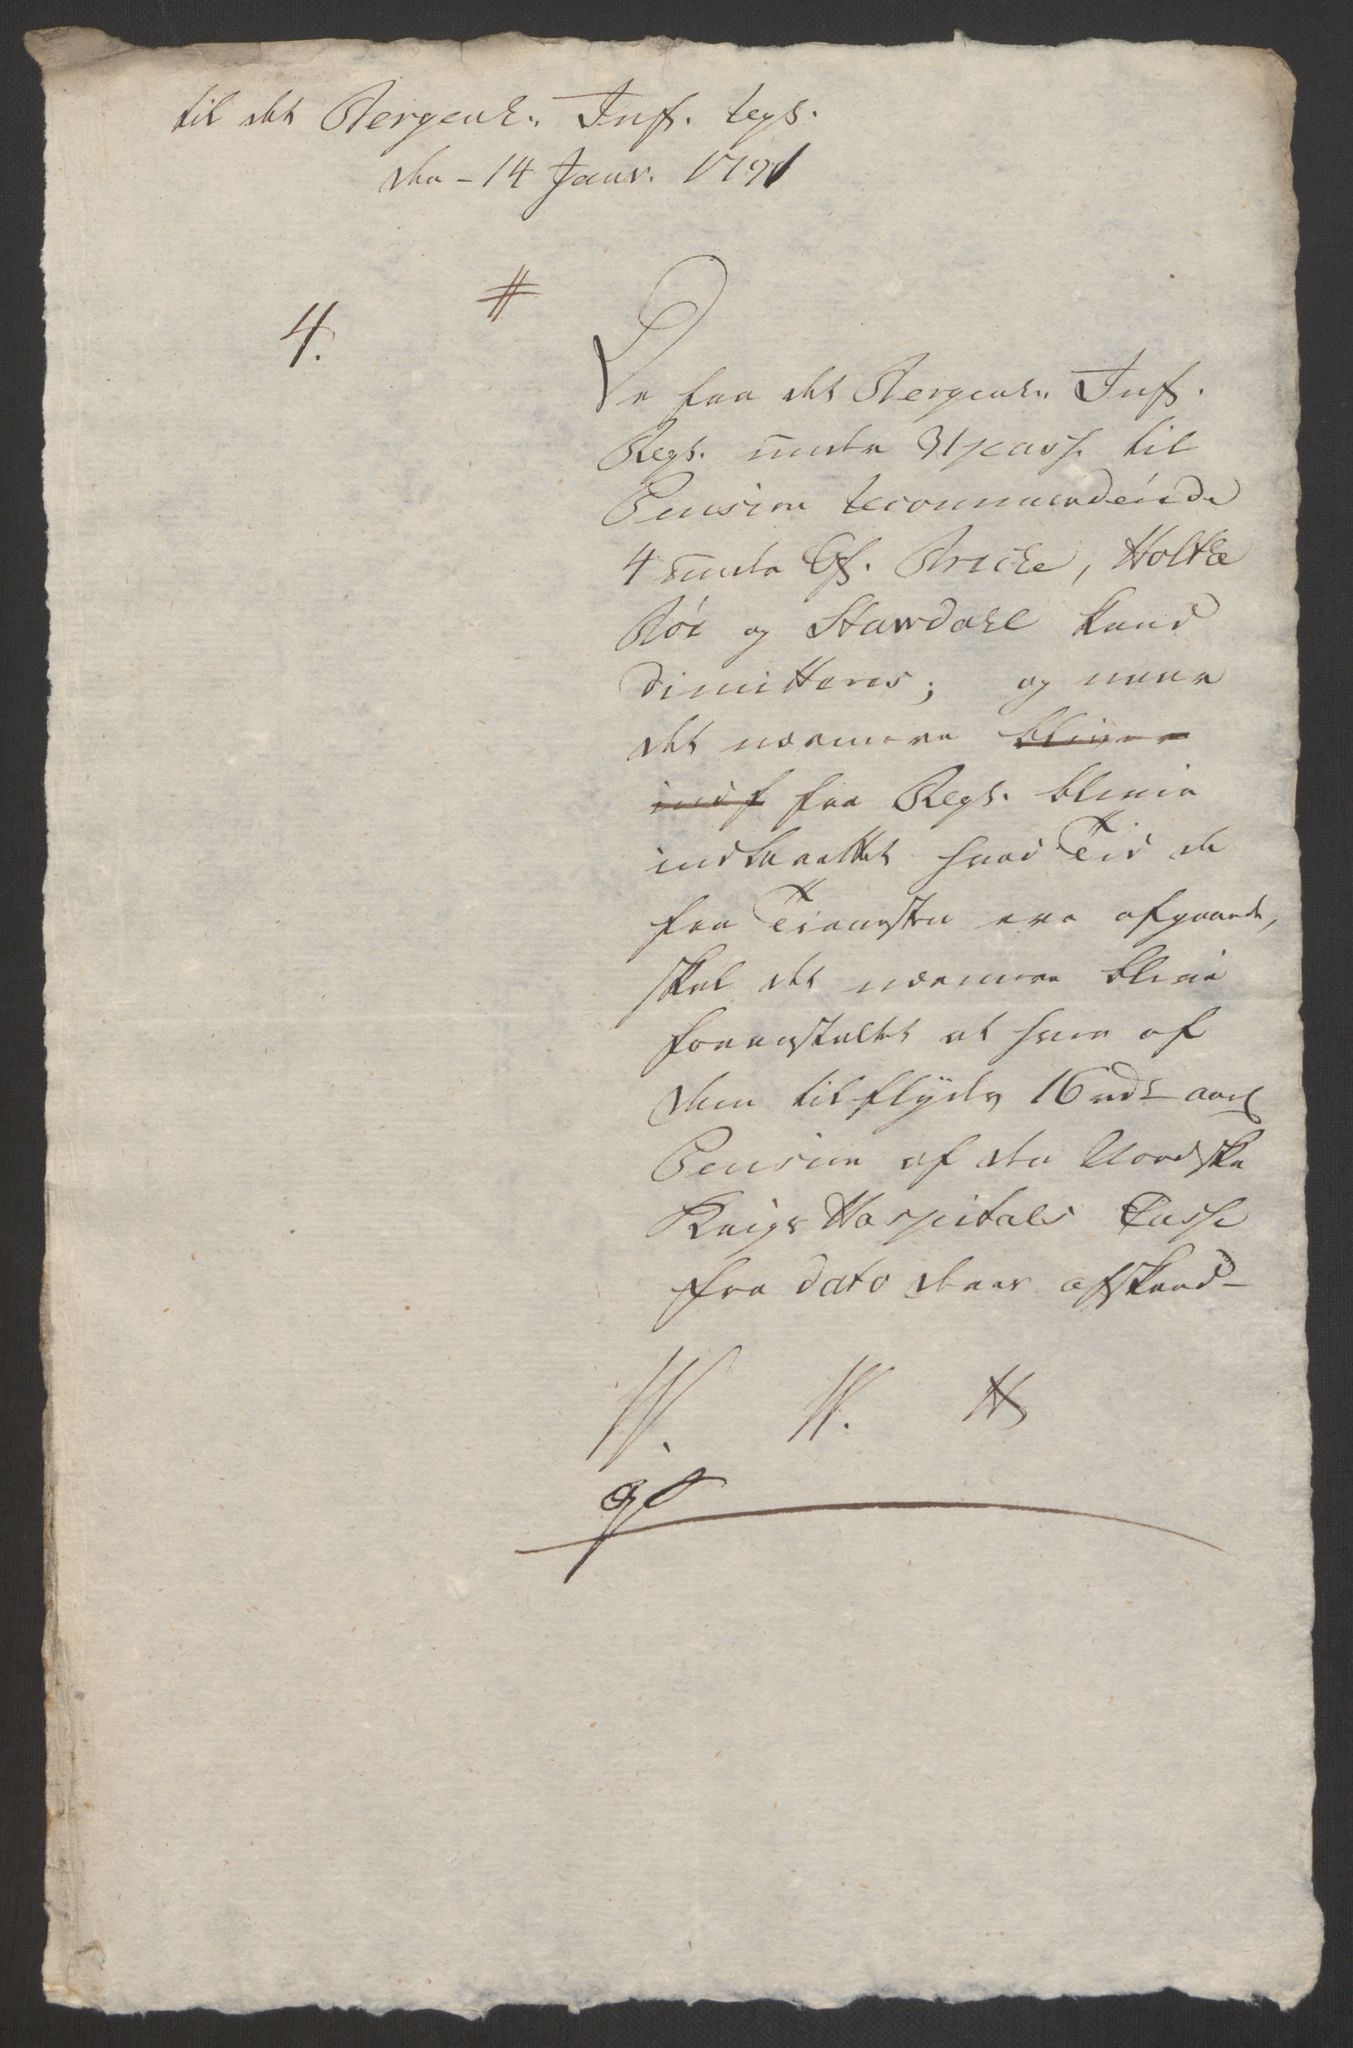 til det Bergenh: Inf. regt.
den 14 Janv. 1791
#
4.
De fra det Bergenh: Inf.
Regt. under passé til
Pension recommenderede
4 under Of. Bricke, Holthe
Bøe og Stawdahl kand
dimitteres; og naar
det nærmere bliver
ind f fra Regt. blevne
indberettet hvad Tid de
fra Tienesten ere afgaaede,
skal det nærmere blive
foranstaltet at hver af
dem tilflyder 16 rd aarl
Pension af den Nordske
Krigs Hospitals Casse
fra dato deres afskeed